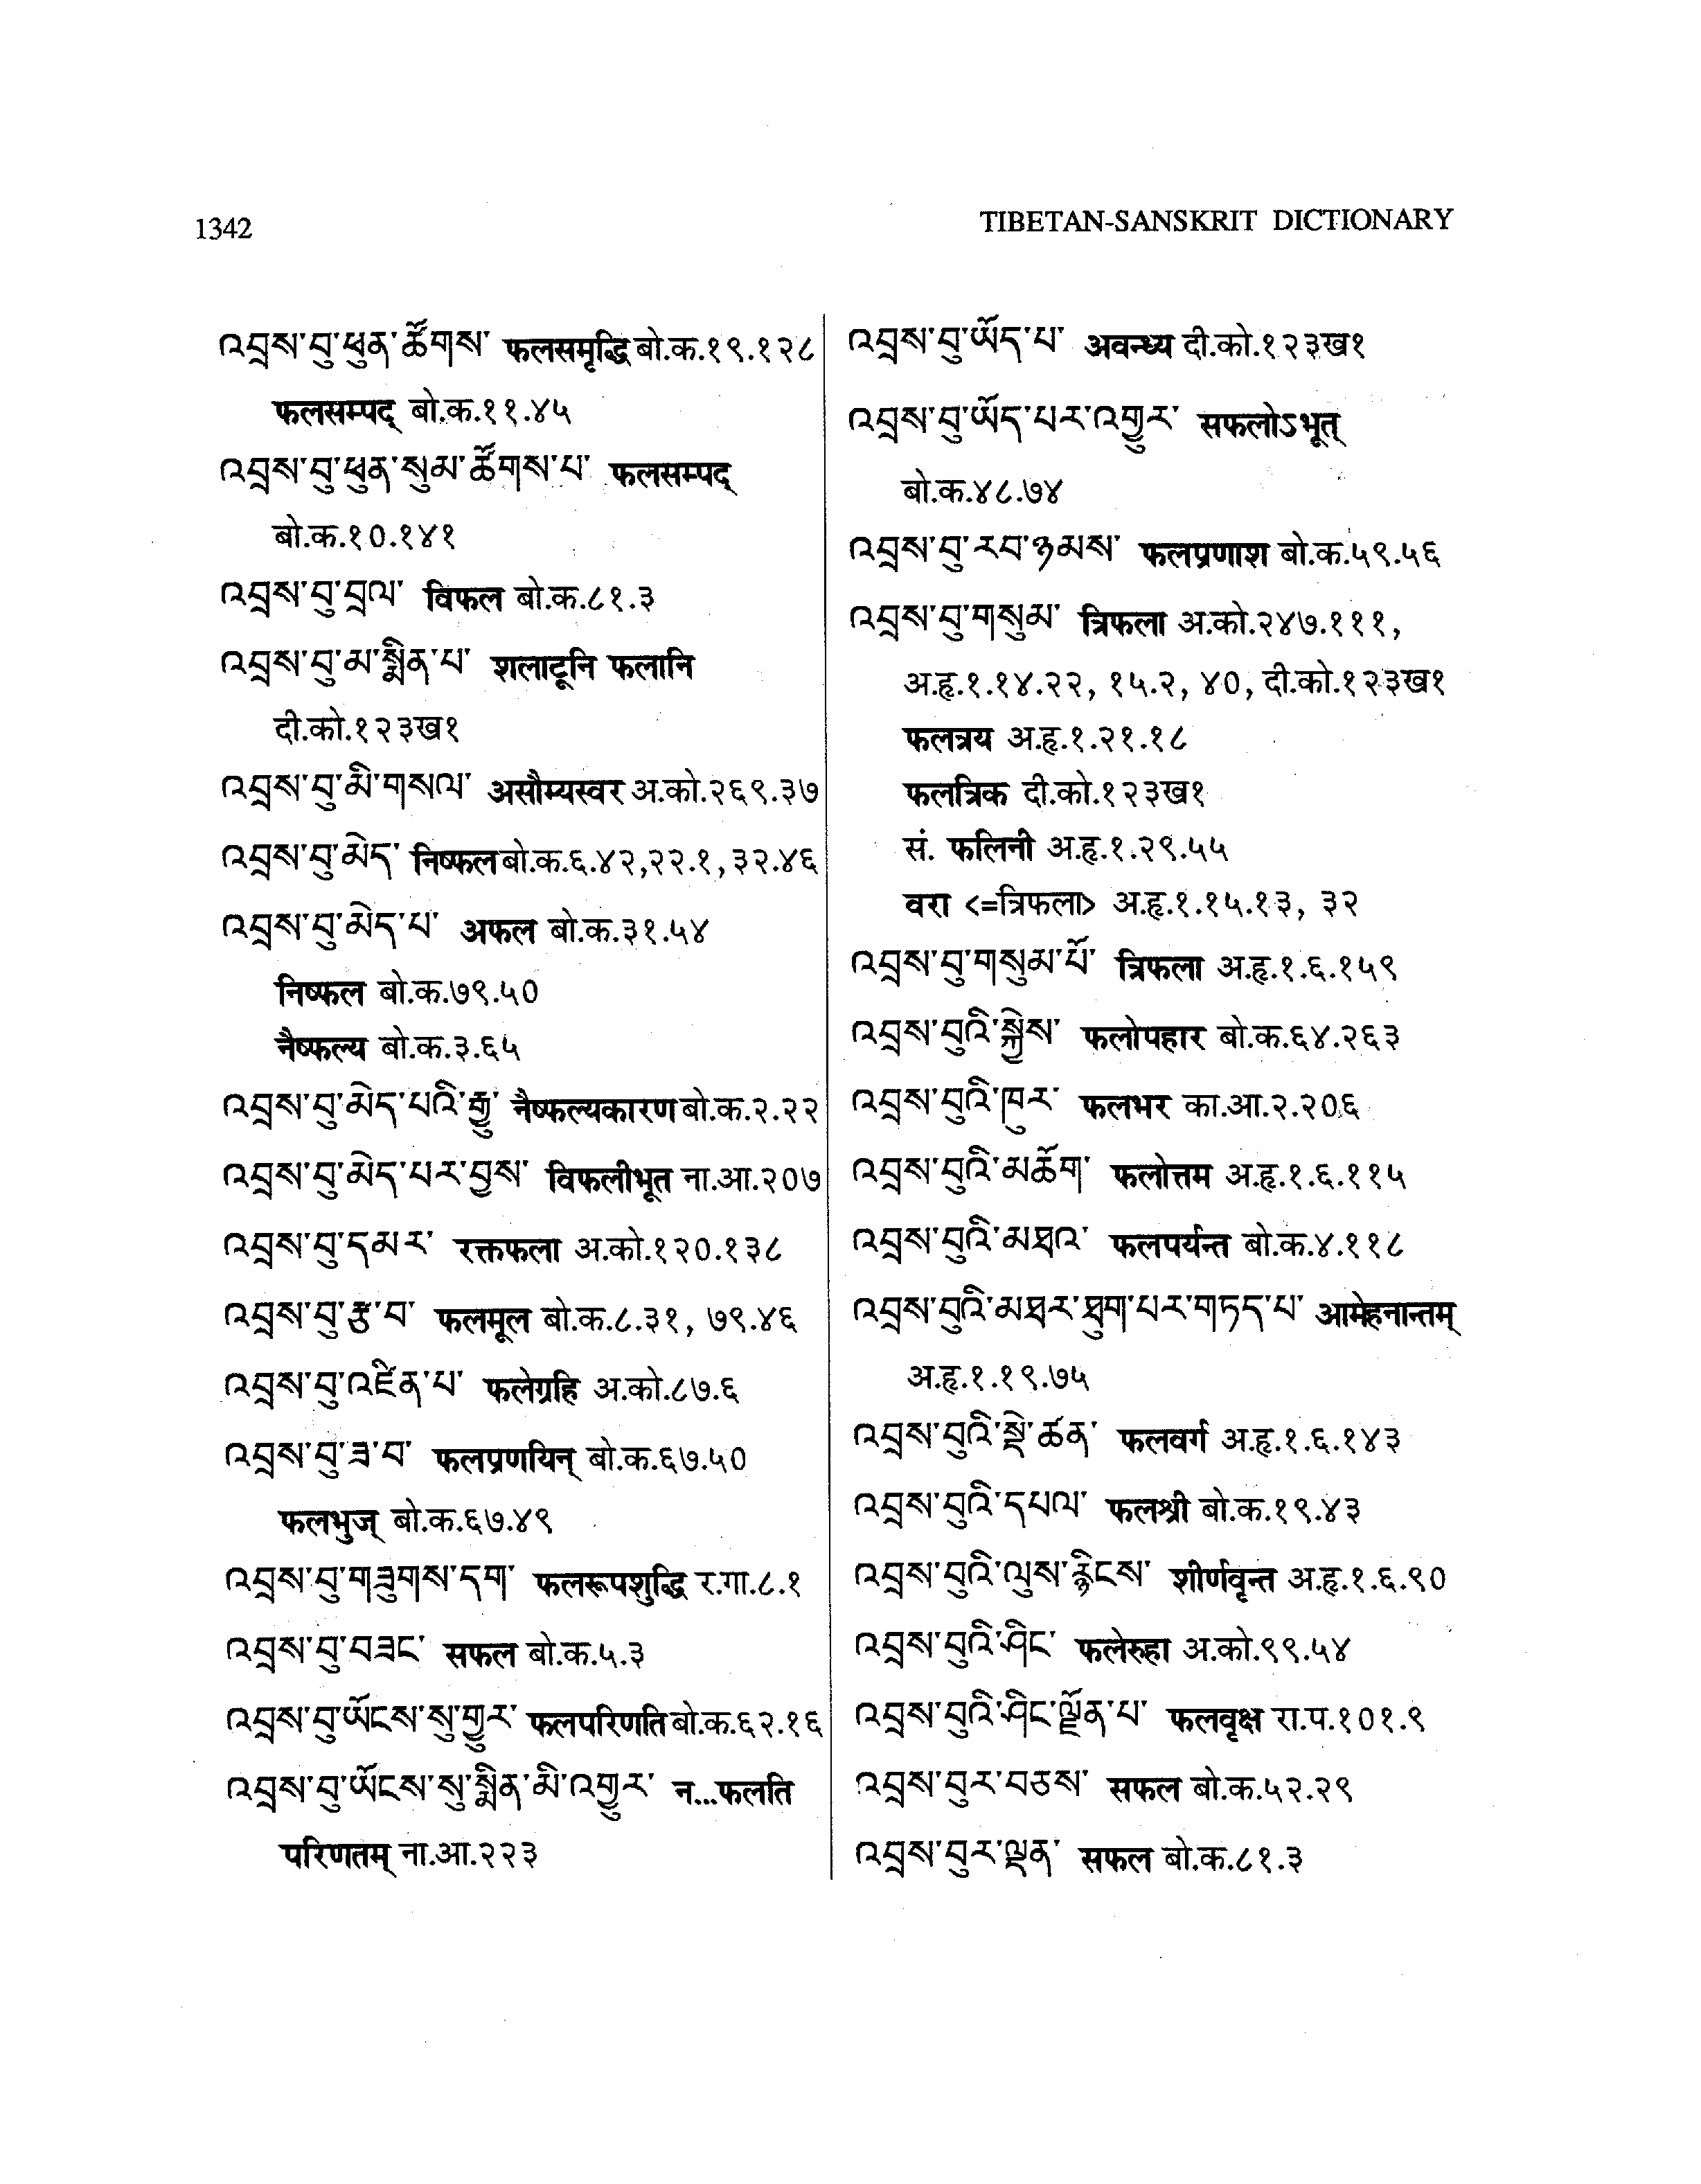 1342
TIBETAN-SANSKRIT DICTIONARY
འབྲས་བུ་ཕུན་ཚོགས་ फलसमृद्धि बो.क.१९.१२८
फलसम्पद् बो.क.११.४५
འབྲས་བུ་ཕུན་སུམ་ཚོགས་པ་ फलसम्पद्
बो.क.१0.१४१
འབྲས་བུ་བྲལ་ विफल बो.क.८१.३
འབྲས་བུ་མ་སྨིན་པ་ शलाटूनि फलानि
दी.को.१२३ख१
འབྲས་བུ་མི་གསལ་ असौम्यस्वर अ.को.२६९.३७
འབྲས་བུ་མེད་ निष्फल बो.क.६.४२,२२.१,३२.४६
འབྲས་བུ་མེད་པ་ अफल बो.क.३१.५४
निष्फल बो.क.७९.५0
नैष्फल्य बो.क.३.६५
འབྲས་བུ་མེད་པའི་རྒྱུ་ नैष्फल्यकारण बो.क.२.२२
འབྲས་བུ་མེད་པར་བྱས་ विफलीभूत ना.आ.२0७
འབྲས་བུ་དམར་ रक्तफला अ.को.१२0.१३८
འབྲས་བུ་རྩ་བ་ फलमूल बो.क.८.३१, ७९.४६
འབྲས་བུ་འཛིན་པ་ फलेग्रहि अ.को.८७.६
འབྲས་བུ་ཟ་བ་ फलप्रणयिन् बो.क.६७.५0
फलभुज् बो.क.६७.४९
འབྲས་བུ་གཟུགས་དག་ फलरूपशुद्धि र.गा.८.१
འབྲས་བུ་བཟང་ सफल बो.क.५.३
འབྲས་བུ་ཡོངས་སུ་གྱུར་ फलपरिणति बो.क.६२.१६
འབྲས་བུ་ཡོངས་སུ་སྨིན་མི་འགྱུར་ न...फलति
परिणतम् ना.आ.२२३
འབྲས་བུ་ཡོད་པ་ अवन्ध्य दी.को.१२३ख१
འབྲས་བུ་ཡོད་པར་འགྱུར་ सफलोऽभूत्
बो.क.४८.७४
འབྲས་བུ་རབ་ཉམས་ फलप्रणाश बो.क.५९.५६
འབྲས་བུ་གསུམ་ त्रिफला अ.को.२४७.१११,
अ.हृ.१.१४.२२, १५.२, ४0, दी.को.१२३ख१
फलत्रय अ.हृ.१.२१.१८
फलत्रिक दी.को.१२३ख१
सं. फलिनी अ.हृ.१.२९.५५
वरा <=त्रिफला> अ.हृ.१.१५.१३, ३२
འབྲས་བུ་གསུམ་པོ་ त्रिफला अ.हृ.१.६.१५९
འབྲས་བུའི་སྐྱེས་ फलोपहार बो.क.६४.२६३
འབྲས་བུའི་ཁུར་ फलभर का.आ.२.२0६
འབྲས་བུའི་མཆོག་ फलोत्तम अ.हृ.१.६.११५
འབྲས་བུའི་མཐའ་ फलपर्यन्त बो.क.४.११८
འབྲས་བུའི་མཐར་ཐུག་པར་གཏད་པ་ आमेहनान्तम्
अ.हृ.१.१९.७५
འབྲས་བུའི་སྡེ་ཚན་ फलवर्ग अ.हृ.१.६.१४३
འབྲས་བུའི་དཔལ་ फलश्री बो.क.१९.४३
འབྲས་བུའི་ལུས་རྙིངས་ शीर्णवृन्त अ.हृ.१.६.९0
འབྲས་བུའི་ཤིང་ फलेरुहा अ.को.९९.५४
འབྲས་བུའི་ཤིང་ལྗོན་པ་ फलवृक्ष रा.प.१0१.९
འབྲས་བུར་བཅས་ सफल बो.क.५२.२९
འབྲས་བུར་ལྡན་ सफल बो.क.८१.३